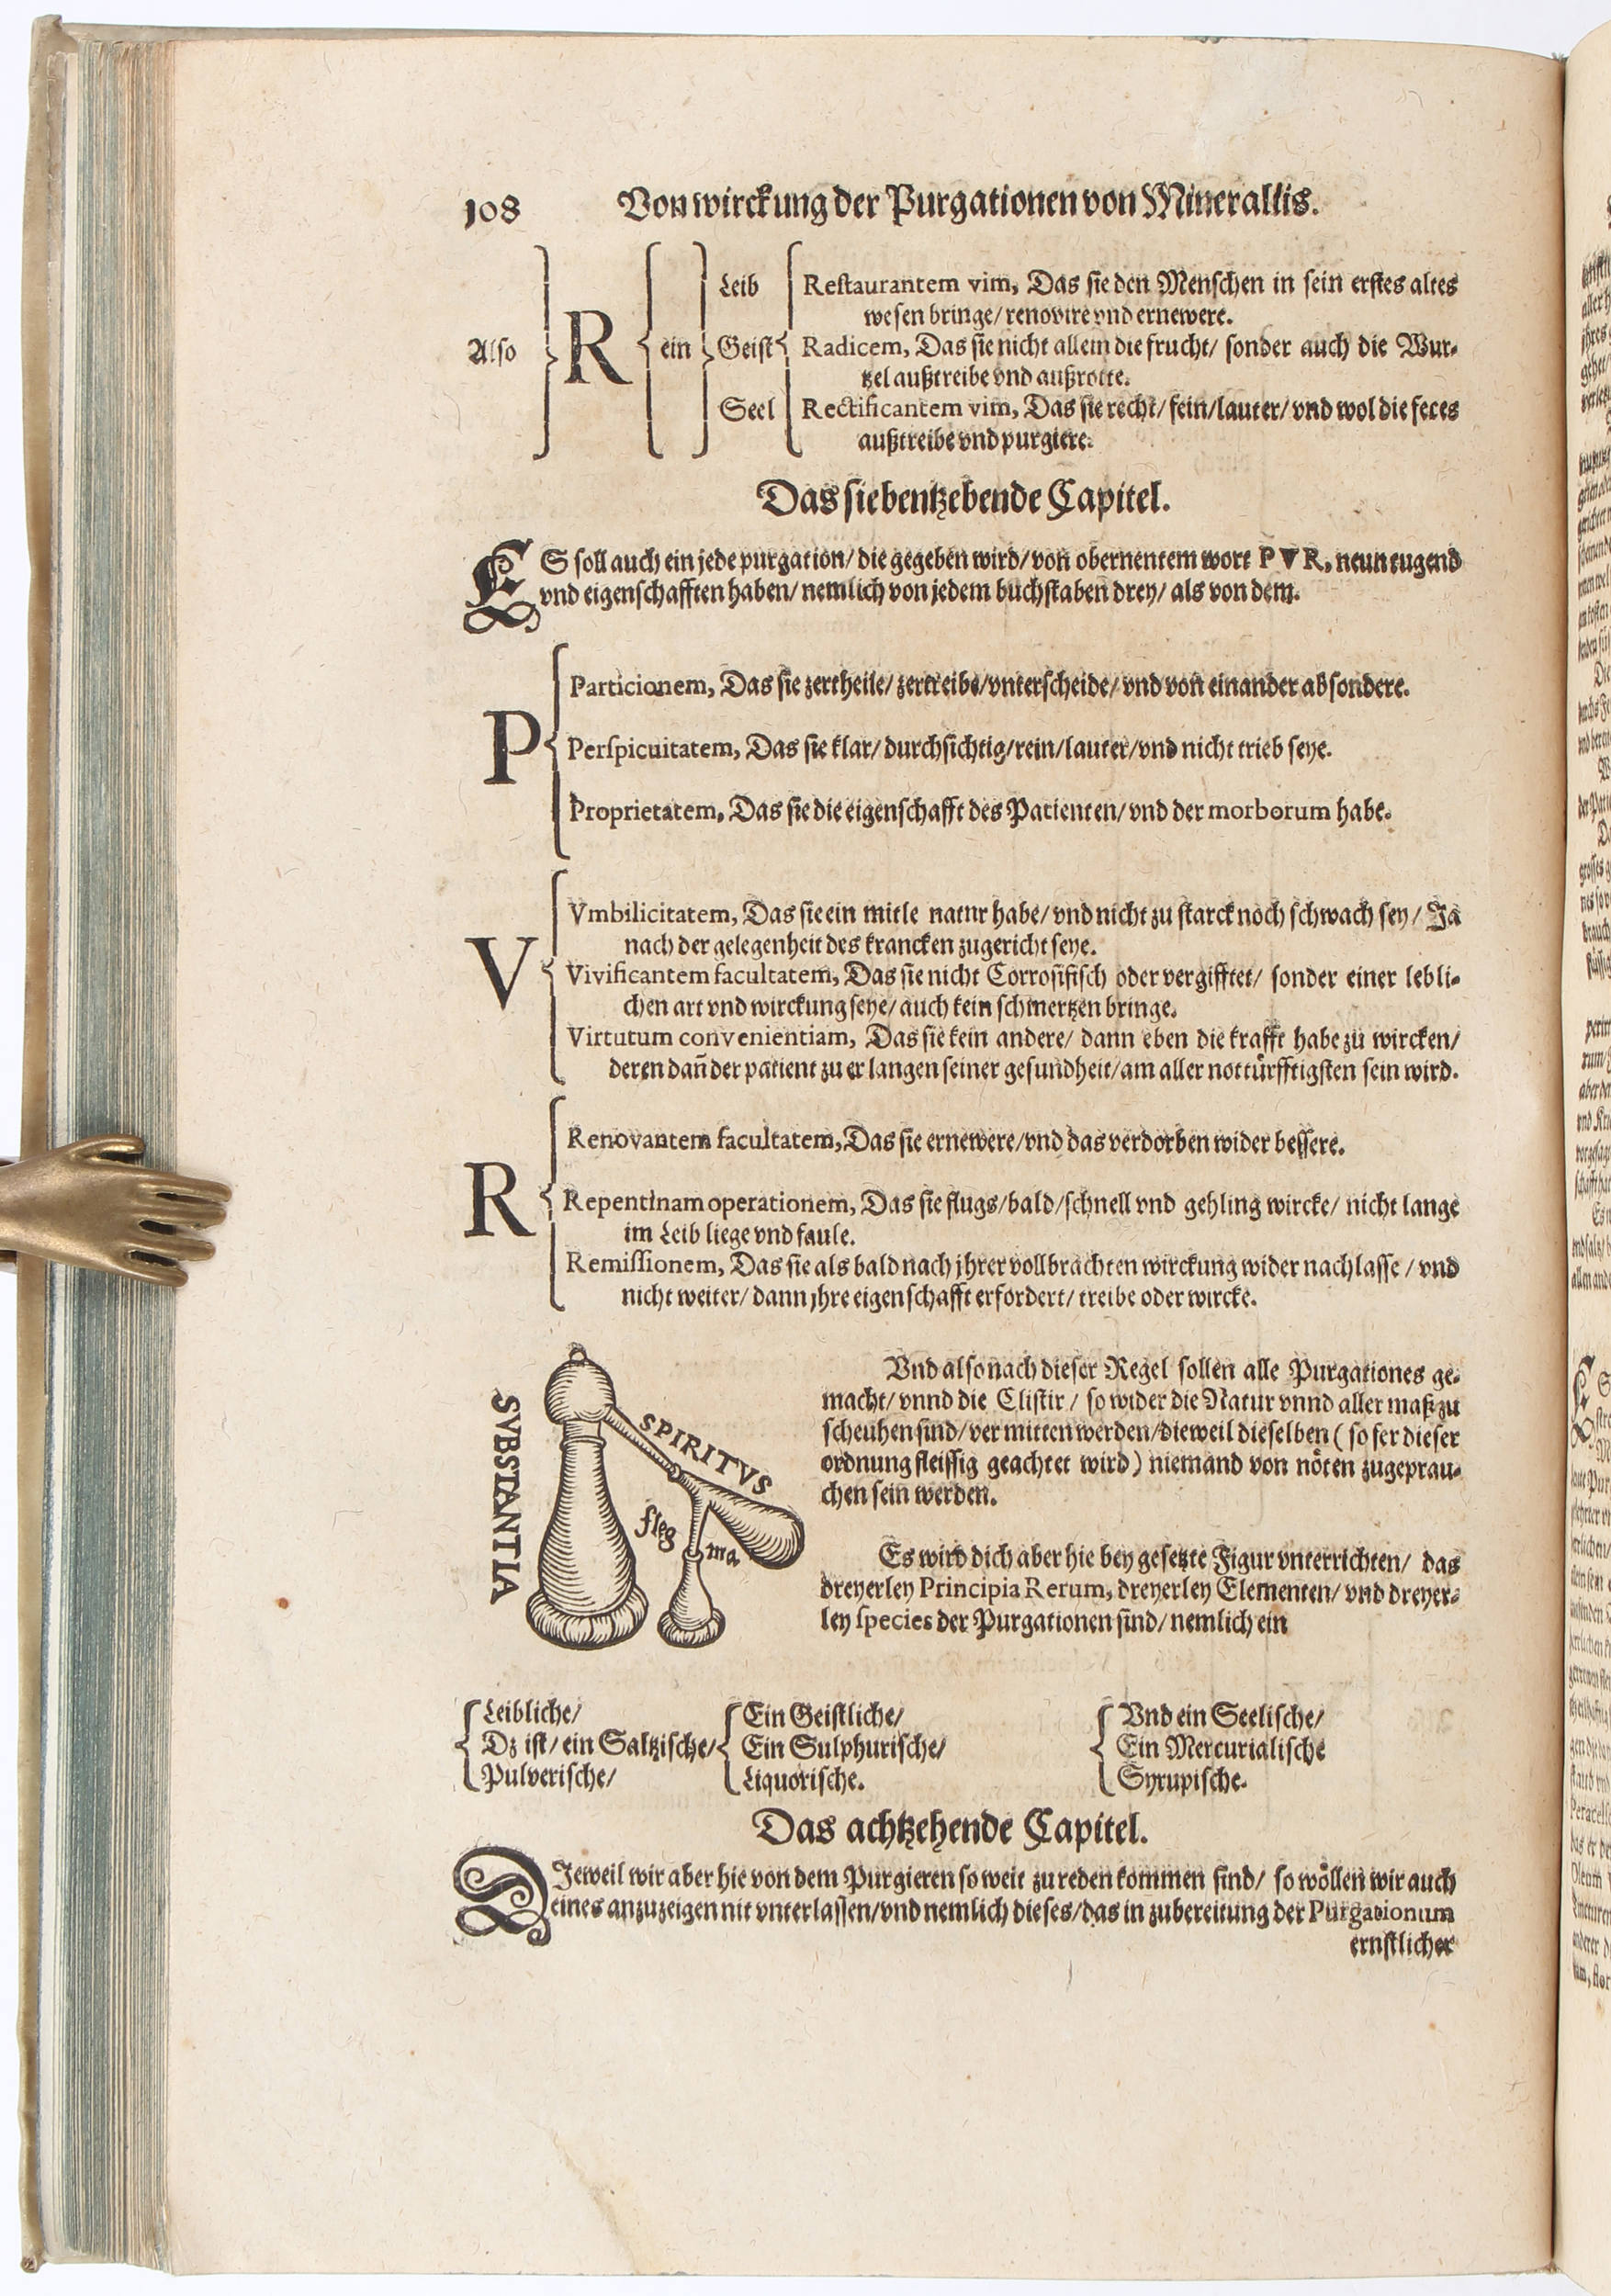 108 Von wirckung der Purgationen von Minerallis.
Leib Restaurantem vim, Das sie den Menschen in sein erstes altes
wesen bringe/ renovire vnd ernewere.
Also R ein Geist Radicem, Das sie nicht allein die frucht/ sonder auch die Wur-
tzel außtreibe vnd außrotte.
Seel Rectificantem vim, Das sie recht/ fein/ lauter/ vnd wol die feces
außtreibe vnd purgiere.
Das siebentzebende Capitel.
ES soll auch ein jede purgation/ die gegeben wird/ von obernentem wort PVR, neun tugend
vnd eigenschafften haben/ nemlich von jedem buchstaben drey/ als von dem.
Particionem, Das sie zertheile/ zertreibe/ vnterscheide/ vnd von einander absondere.
P Perspicuitatem, Das sie klar/ durchsichtig/ rein/ lauter/ vnd nicht trieb seye.
Proprietatem, Das sie die eigenschafft des Patienten/ vnd der morborum habe.
Vmbilicitatem, Das sie ein mitle natur habe/ vnd nicht zu starck noch schwach sey/ Ja
nach der gelegenheit des krancken zugericht seye.
V Vivificantem facultatem, Das sie nicht Corrosifisch oder vergifftet/ sonder einer lebli-
chen art vnd wirckung seye/ auch kein schmertzen bringe.
Virtutum convenientiam, Das sie kein andere/ dann eben die krafft habe zu wircken/
deren dañ der patient zu erlangen seiner gesundheit/ am aller nottürfftigsten sein wird.
Renovantem facultatem, Das sie ernewere/ vnd das verdorben wider bessere.
R Repentinam operationem, Das sie flugs/ bald/ schnell vnd gehling wircke/ nicht lange
im Leib liege vnd faule.
Remissionem, Das sie als bald nach jhrer vollbrachten wirckung wider nachlasse/ vnd
nicht weiter/ dann jhre eigenschafft erfordert/ treibe oder wircke.
SVBSTANTIA
SPIRITVS
fleg
ma
Vnd also nach dieser Regel sollen alle Purgationes ge-
macht/ vnnd die Clistir/ so wider die Natur vnnd aller maß zu
scheuhen sind/ vermitten werden/ dieweil dieselben (so fer dieser
ordnung fleissig geachtet wird) niemand von nöten zugeprau-
chen sein werden.
Es wird dich aber hie bey gesetzte Figur vnterrichten/ das
dreyerley Principia Rerum, dreyerley Elementen/ vnd dreyer-
ley species der Purgationen sind/ nemlich ein
Leibliche/ Ein Geistliche/ Vnd ein Seelische/
Dz ist/ ein Saltzische/ Ein Sulphurische/ Ein Mercurialische
Pulverische/ Liquorische. Syrupische.
Das achtzehende Capitel.
DIeweil wir aber hie von dem Purgieren so weit zu reden kommen sind/ so wöllen wir auch
eines anzuzeigen nit vnterlassen/ vnd nemlich dieses/ das in zubereitung der Purgationum
ernstlicher